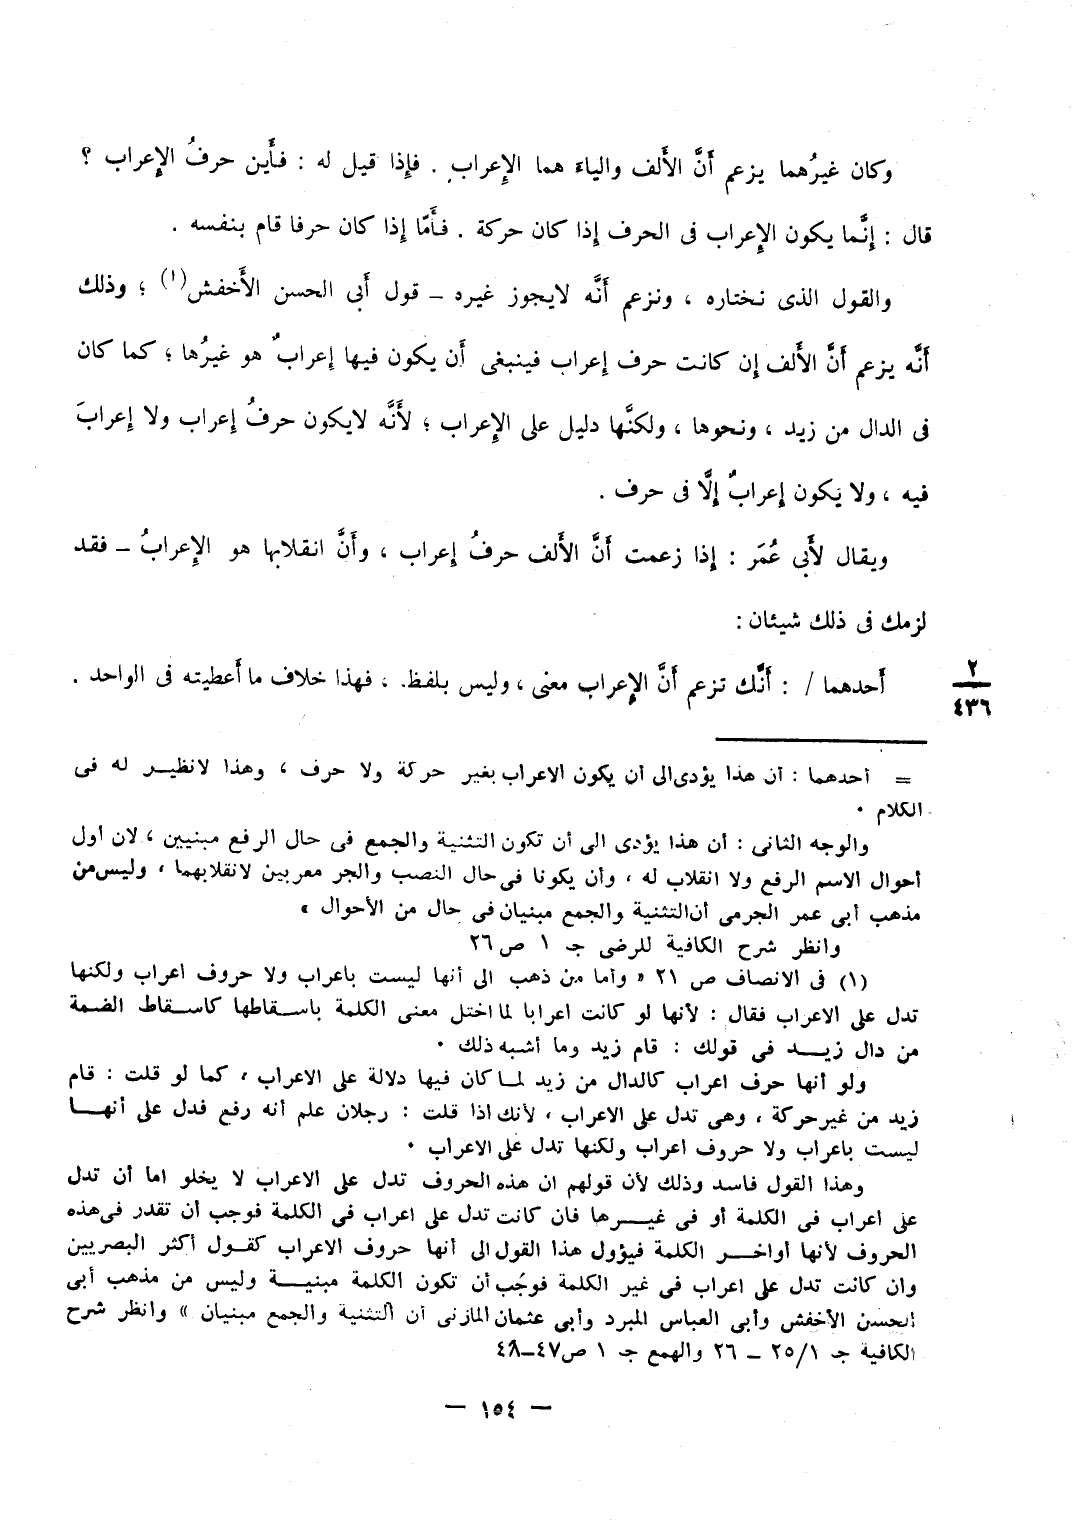 وكان غيرُهما يزعم أَنَّ الأَلف والياءَ هما الإِعراب . فإِذا قيل له : فأَين حرفُ الإِعراب ؟
قال : إِنَّما يكون الإِعراب فى الحرف إِذا كان حركة . فأَمّا إِذا كان حرفا قام بنفسه .
والقول الذى نختاره ، ونزعم أَنَّه لايجوز غيره – قول أَبى الحسن الأَخفش(١) ؛ وذلك
أَنَّه يزعم أَنَّ الأَلف إِن كانت حرف إِعراب فينبغى أَن يكون فيها إِعرابٌ هو غيرُها ؛ كما كان
فى الدال من زيد ، ونحوها ، ولكنَّها دليل على الإِعراب ؛ لأَنَّه لايكون حرفُ إِعراب ولا إِعرابَ
فيه ، ولا يكون إِعرابٌ إِلَّا فى حرف .
ويقال لأَبى عُمَر : إِذا زعمت أَنَّ الأَلف حرفُ إِعراب ، وأَنَّ انقلابها هو الإِعرابُ – فقد
لزمك فى ذلك شيئان :
أَحدهما / : أَنَّك تزعم أَنَّ الإِعراب معنى ، وليس بلفظ . فهذا خلاف ما أَعطيته فى الواحد .
٢
٤٣٦
= أحدهما : أن هذا يؤدى الى أن يكون الاعراب بغير حركة ولا حرف ، وهذا لانظير له فى
الكلام .
والوجه الثانى : أن هذا يؤدى الى أن تكون التثنية والجمع فى حال الرفع مبنيين ، لان أول
أحوال الاسم الرفع ولا انقلاب له ، وأن يكونا فى حال النصب والجر معربين لانقلابهما ، وليس من
مذهب أبى عمر الجرمى أن التثنية والجمع مبنيان فى حال من الأحوال »
وانظر شرح الكافية للرضى جـ ١ ص ٢٦
(١) فى الانصاف ص ٢١ « وأما من ذهب الى أنها ليست باعراب ولا حروف اعراب ولكنها
تدل على الاعراب فقال : لأنها لو كانت اعرابا لما اختل معنى الكلمة باسقاطها كاسقاط الضمة
من دال زيد فى قولك : قام زيد وما أشبه ذلك .
ولو أنها حرف اعراب كالدال من زيد لما كان فيها دلالة على الاعراب ، كما لو قلت : قام
زيد من غير حركة ، وهى تدل على الاعراب ، لأنك اذا قلت : رجلان علم أنه رفع فدل على أنها
ليست باعراب ولا حروف اعراب ولكنها تدل على الاعراب .
وهذا القول فاسد وذلك لأن قولهم ان هذه الحروف تدل على الاعراب لا يخلو اما أن تدل
على اعراب فى الكلمة أو فى غيرها فان كانت تدل على اعراب فى الكلمة فوجب أن تقدر فى هذه
الحروف لأنها أواخر الكلمة فيؤول هذا القول الى أنها حروف الاعراب كقول أكثر البصريين
وان كانت تدل على اعراب فى غير الكلمة فوجب أن تكون الكلمة مبنية وليس من مذهب أبى
الحسن الأخفش وأبى العباس المبرد وأبى عثمان المازنى أن التثنية والجمع مبنيان » وانظر شرح
الكافية جـ ٢٥/١ – ٢٦ والهمع جـ ١ ص ٤٧–٤٨
– ١٥٤ –